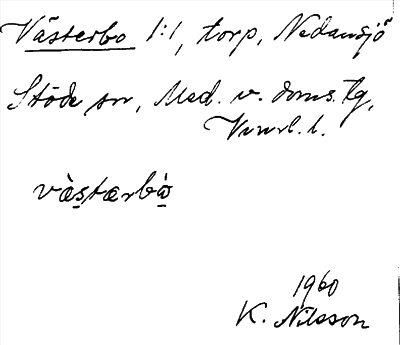 Västerbo 1:1, torp, Nedansjö
Stöde sn, Med. v. doms. tg,
Vnrl. l.
västærbò̱
1960
K. Nilsson